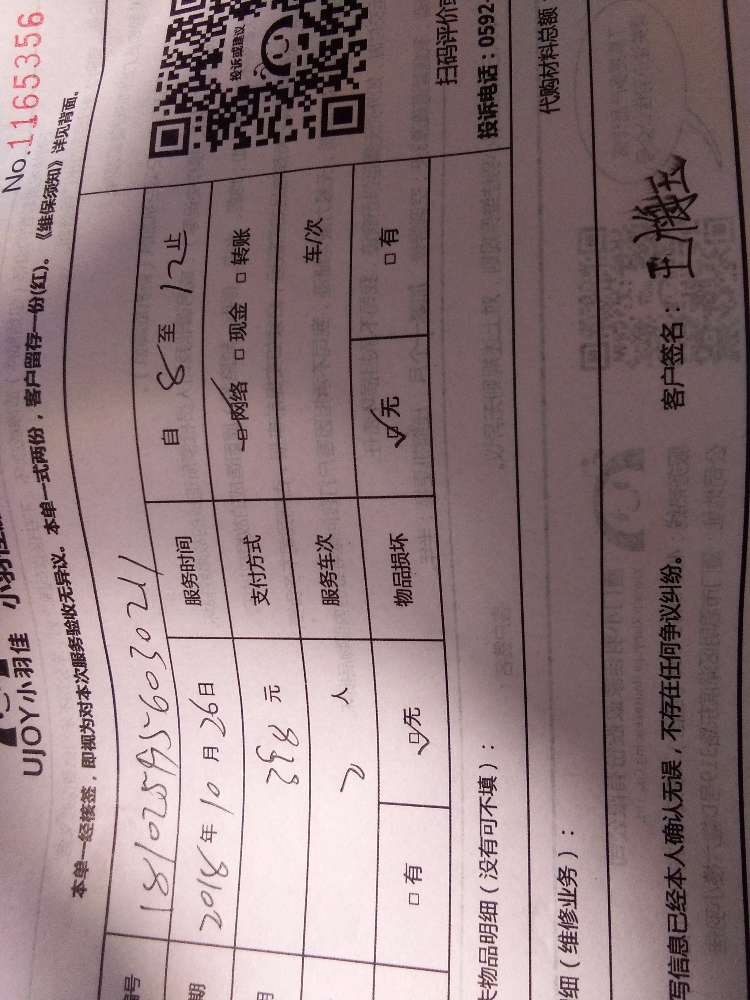 No.1165356
UJOY小羽佳
本单一经核签，即视为对本次服务验收无异议。本单一式两份，客户留存一份(红)。《维保须知》详见背面。
编号
投诉或建议
期 2018年10月26日 服务时间 自 8 至 12止
用 298 元 支付方式 网络 现金 转账
2 人 服务车次 车/次
有 无 物品损坏 无 有
扫码评价
失物品明细（没有可不填）： 投诉电话：0592-
细（维修业务）： 代购材料总额
写信息已经本人确认无误，不存在任何争议纠纷。 客户签名：